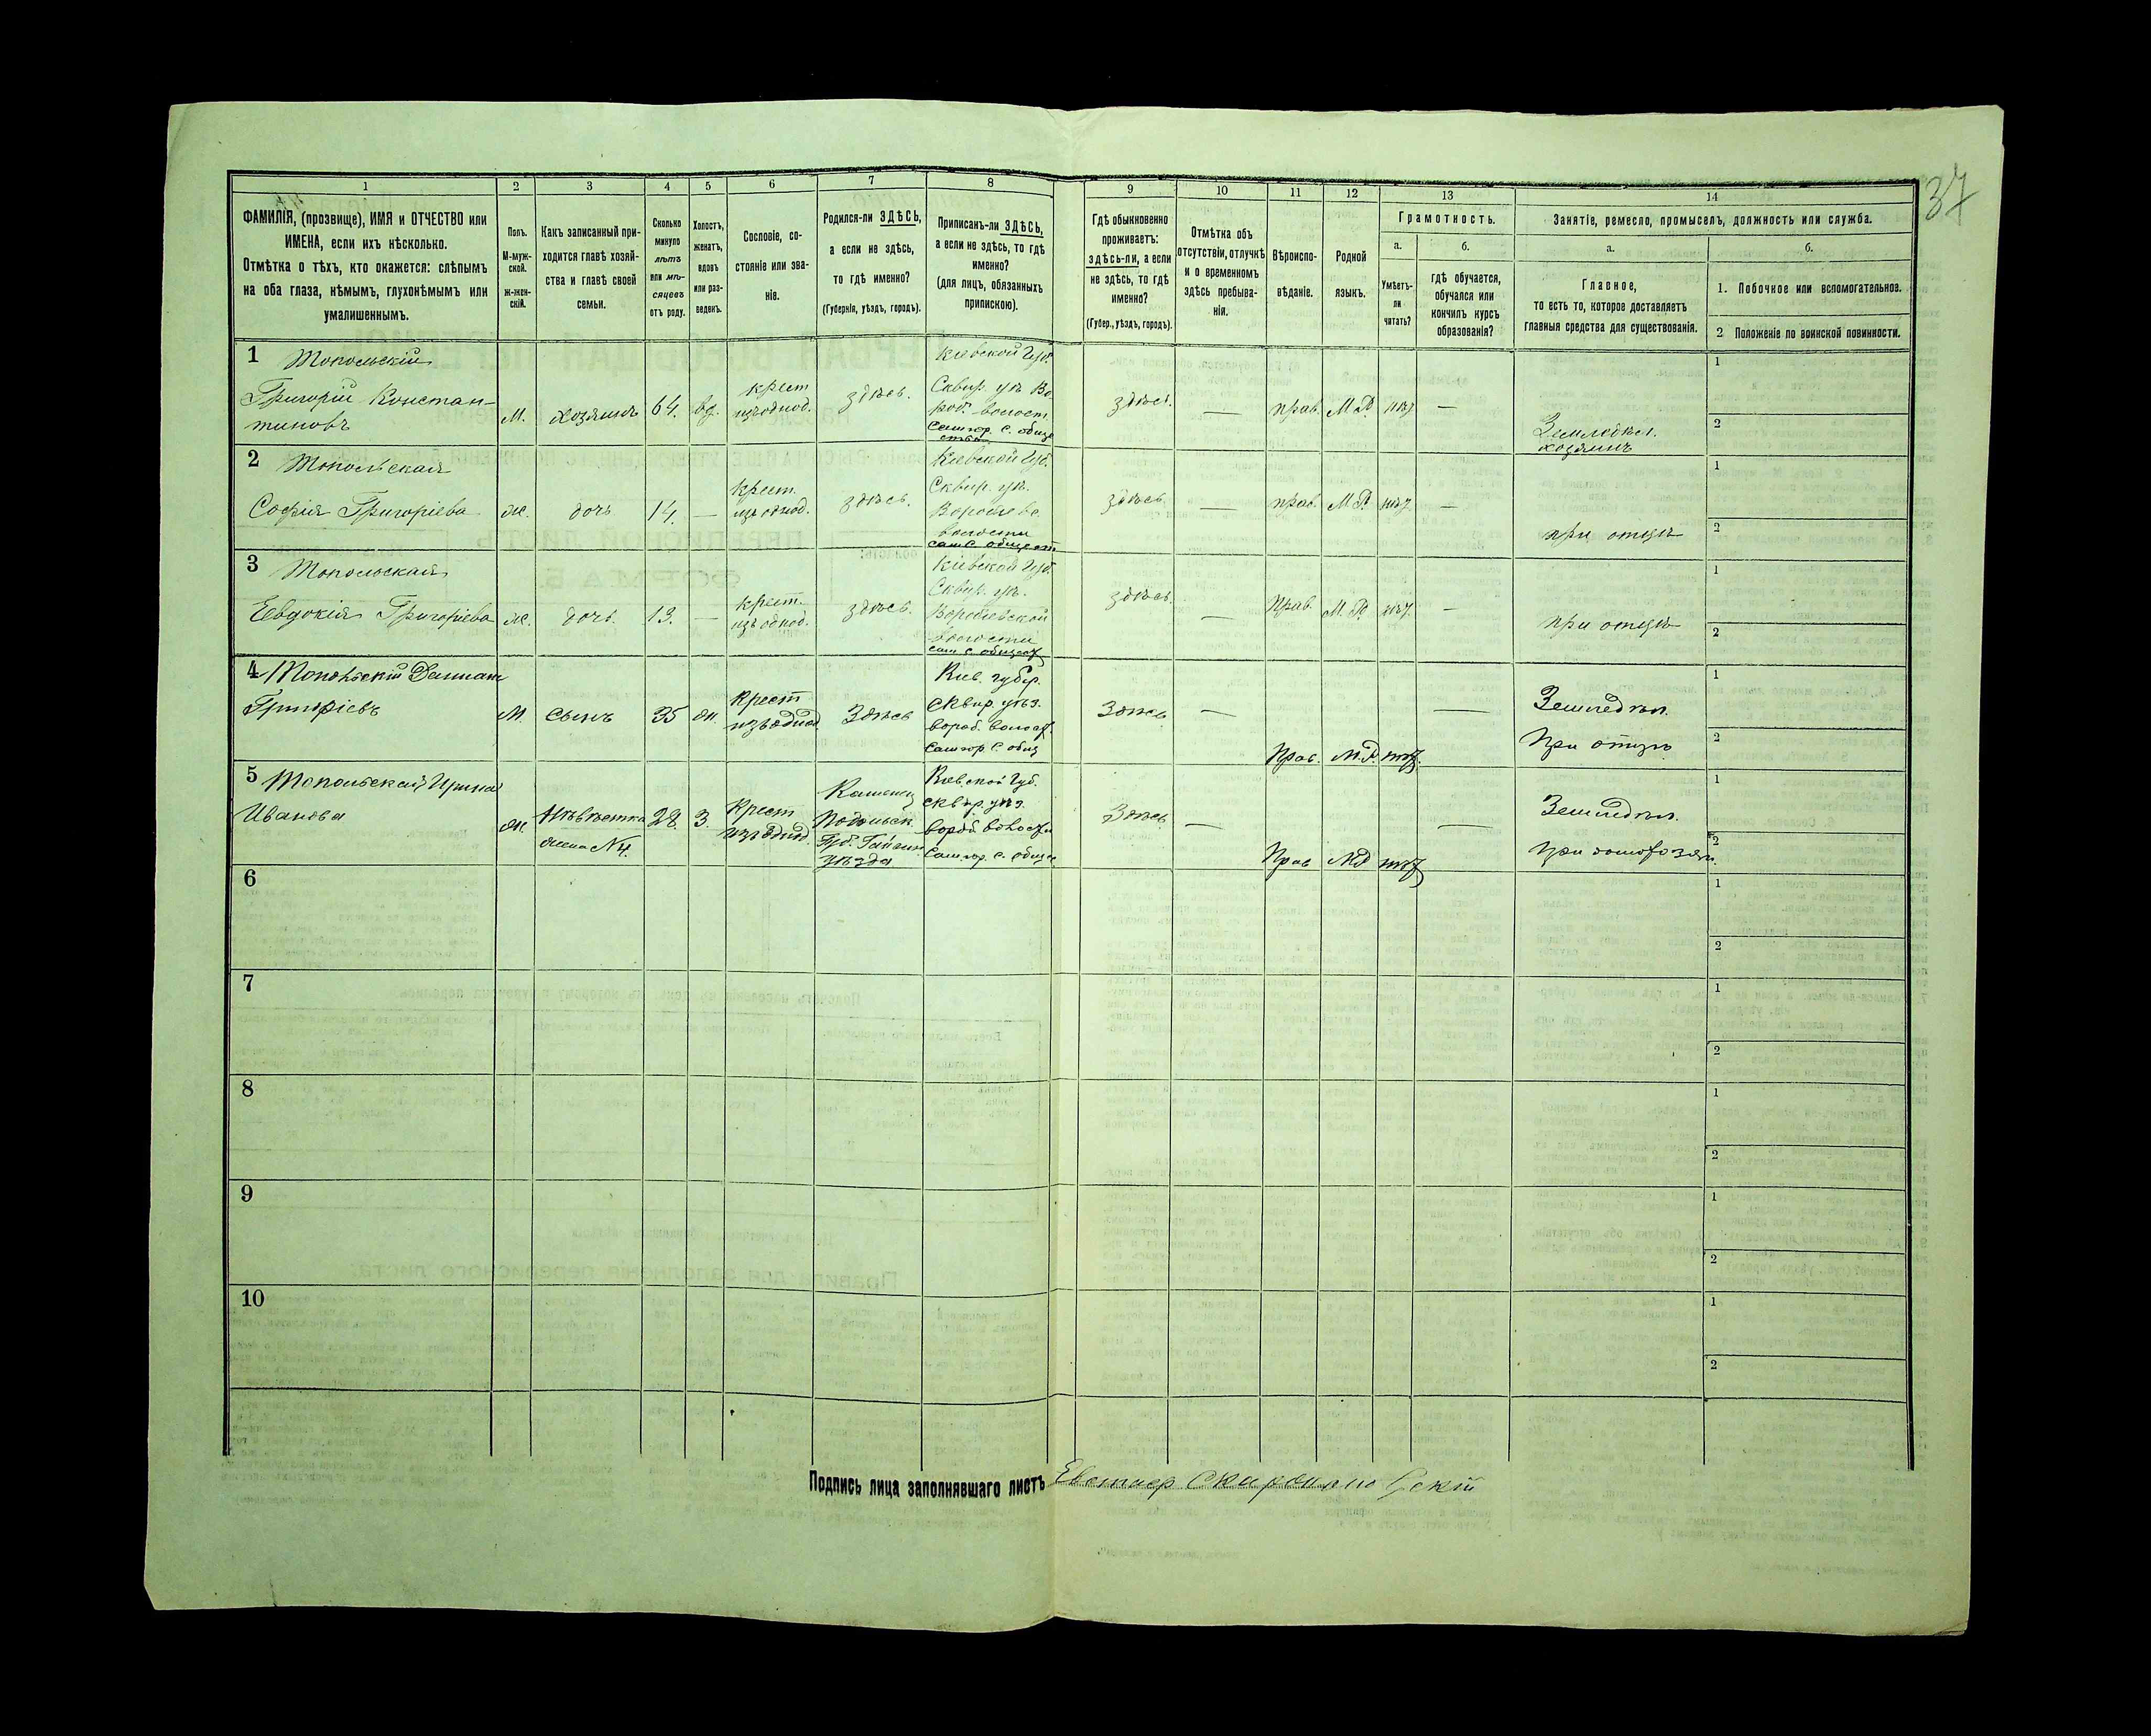 37
1
2
3
4
5
6
7
8
9
10
11
12
13
14
ФАМИЛІЯ, (прозвище), ИМЯ и ОТЧЕСТВО или
ИМЕНА, если ихъ нѣсколько.
Отмѣтка о тѣхъ, кто окажется: слѣпымъ
на оба глаза, нѣмымъ, глухонѣмымъ или
умалишеннымъ.
Полъ.
М-муж-
ской.
ж-жен-
скій.
Какъ записанный при-
ходится главѣ хозяй-
ства и главѣ своей
семьи.
Сколько
минуло
лѣтъ
или мѣ-
сяцевъ
отъ роду.
Холостъ,
женатъ,
вдовъ
или раз-
веденъ.
Сословіе, со-
стояніе или зва-
ніе.
Родился-ли ЗДѢСЬ,
а если не здѣсь,
то гдѣ именно?
(Губернія, уѣздъ, городъ).
Приписанъ-ли ЗДѢСЬ,
а если не здѣсь, то гдѣ
именно?
(для лицъ, обязанныхъ
припискою).
Гдѣ обыкновенно
проживаетъ:
здѣсь-ли, а если
не здѣсь, то гдѣ
именно?
(Губер., уѣздъ, городъ).
Отмѣтка объ
отсутствіи, отлучкѣ
и о временномъ
здѣсь пребыва-
ніи.
Вѣроиспо-
вѣданіе.
Родной
языкъ.
Грамотность.
а.
Умѣетъ-
ли
читать?
б.
гдѣ обучается,
обучался или
кончилъ курсъ
образованія?
Занятіе, ремесло, промыселъ, должность или служба.
а.
Главное,
то есть то, которое доставляетъ
главныя средства для существованія.
б.
1. Побочное или вспомогательное.
2 Положеніе по воинской повинности.
1 Топольскій
Григорій Констан-
тиновъ
М.
хозяинъ
64.
вд.
крест
изъ однод.
здѣсь.
Кіевской Губ.
Сквир. уѣ. Во
роб. волост.
с. обще
ства
здѣсь.
—
прав.
М.Р.
нѣт
—
Земледѣл.
хозяинъ
1
2
2 Топольская
Софія Григоріева
ж.
дочь
14.
—
крест.
изъ однод.
здѣсь.
Кіевской Губ.
Сквир. уѣ.
волости
с. общест
здѣсь
—
прав.
М.Р.
нѣт
—
при отцѣ
1
2
3 Топольская
Евдокія Григоріева
ж.
дочь.
13.
—
крест.
изъ однод.
здѣсь.
Кіевской Губ.
Сквир. уѣ.
Воробіевской
волости
с. общест
здѣсь.
—
прав.
М.Р.
нѣт.
—
при отцѣ
1
2
4 Топольскій
Григоріевъ
М.
сынъ
35
ж.
Крест
изъ однод.
Здѣсь
Кіев. губер.
сквир. уѣз.
вороб. волост.
с. общ
Здѣсь
—
Прав.
М.Р.
нѣт.
—
Земледѣл.
При отцѣ
1
2
5 Топольская Ирина
Иванова
ж.
Невѣстка
жена N4.
28.
З.
Крест
изъ однод.
Каменец
Подольск.
Губ.
уѣзда
Кіевской Губ.
сквир. уѣз.
вороб. волости
с. обще
Здѣсь.
—
Прав
М.Р
нѣт
—
Земледѣл.
1
2
6
1
2
7
1
2
8
1
2
9
1
2
10
1
2
Подпись лица заполнявшаго листъ